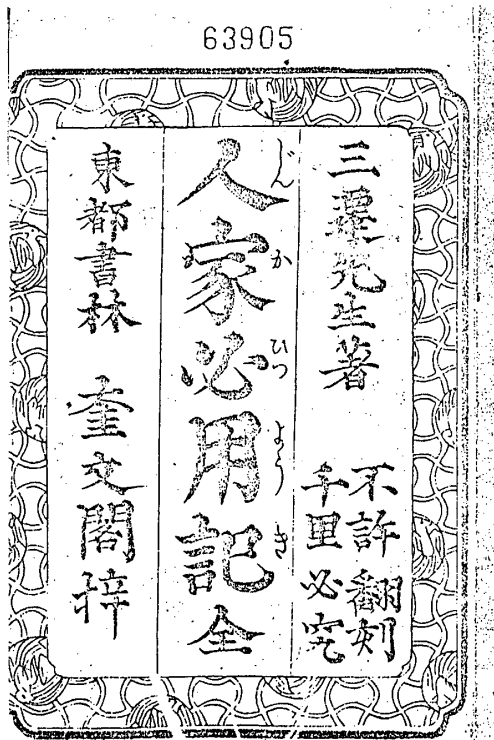 63905
三澤先生著
不許翻刻
千里必究
人家必用記全
じんかひつようき
東都書林 奎文閣梓